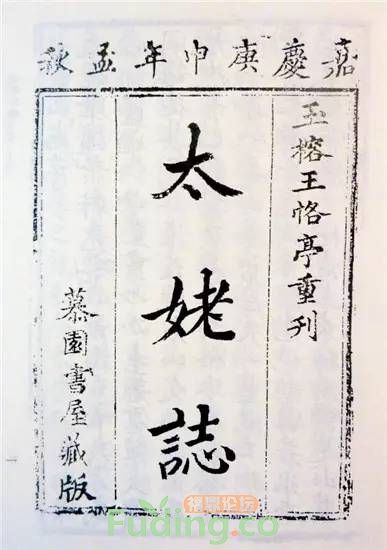 嘉慶庚申年孟秋
玉榕王恪亭重刊
太姥誌
慕園書屋藏版
福鼎论坛
Fuding.co